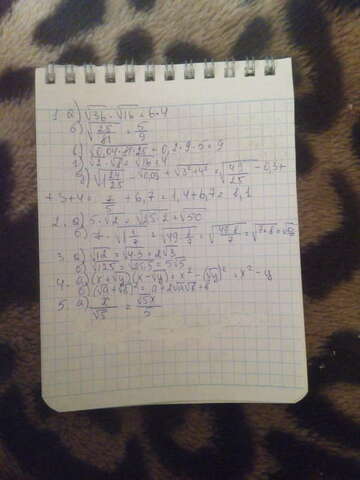 1. а) √36 · √16 = 6·4
б) √25/81 = 5/9
в) √0,04·81·25 = 0,2·9·5 = 9
г) √2 · √8 = √16 = 4
д) √1 24/25 - √0,09 + √3²+4² = √49/25 - 0,3+
+3+4 = 7/5 + 6,7 = 1,4+6,7 = 8,1
2. а) 5·√2 = √25·2 = √50
б) 7·√8/7 = √49·8/7 = √49·8/7 = √7·8 = √56
3. а) √12 = √4·3 = 2√3
б) √125 = √25·5 = 5√5
4. а) (x+√y)(x-√y) = x² - (√y)² = x² - y
б) (√a+√в)² = a+2√a√в+в
5. а) x/√5 = √5x/5